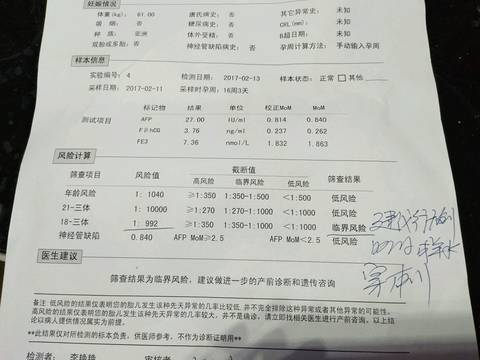 妊娠情况
体重(kg): 61.00 唐氏病史: 否 其它异常史: 未知
吸 烟: 否 糖尿病史: 否 CRL(mm): 未知
种 族: 亚洲 体外受精: 否 B超日期: 未知
双胎或多胎: 否 神经管缺陷病史: 否 孕周计算方法: 手动输入孕周
样本信息
实验编号: 4 检测日期: 2017-02-13 样本状态: 正常 其他
采样日期: 2017-02-11 采样时孕周: 16周3天
标记物 结果 单位 校正MoM MoM
测试项目 AFP 27.00 IU/ml 0.814 0.840
FβhCG 3.76 ng/ml 0.237 0.262
FE3 7.36 nmol/L 1.832 1.863
风险计算
截断值
筛查项目 风险值 高风险 临界风险 低风险 筛查结果
年龄风险 1: 1040 ≥1:350 1:350-1:500 <1:500 低风险
21-三体 1: 10000 ≥1:270 1:270-1:1000 <1:1000 低风险
18-三体 1: 992 ≥1:350 1:350-1:1000 <1:1000 临界风险
神经管缺陷 0.840 AFP MoM≥2.5 AFP MoM<2.5 低风险
医生建议
筛查结果为临界风险，建议做进一步的产前诊断和遗传咨询
备注: 低风险的结果仅表明您的胎儿发生该种先天异常的几率比较低, 并不完全排除这种异常或者其他异常的可能性。
高风险的结果仅表明您的胎儿发生该种先天异常的几率较大，并不是确诊，请立即找相关医生进行产前咨询。以上结
论以病人提供情况属实为前提。
**此结果仅对所检测的标本负责，供医师参考，不作为诊断证明用**
检测者: